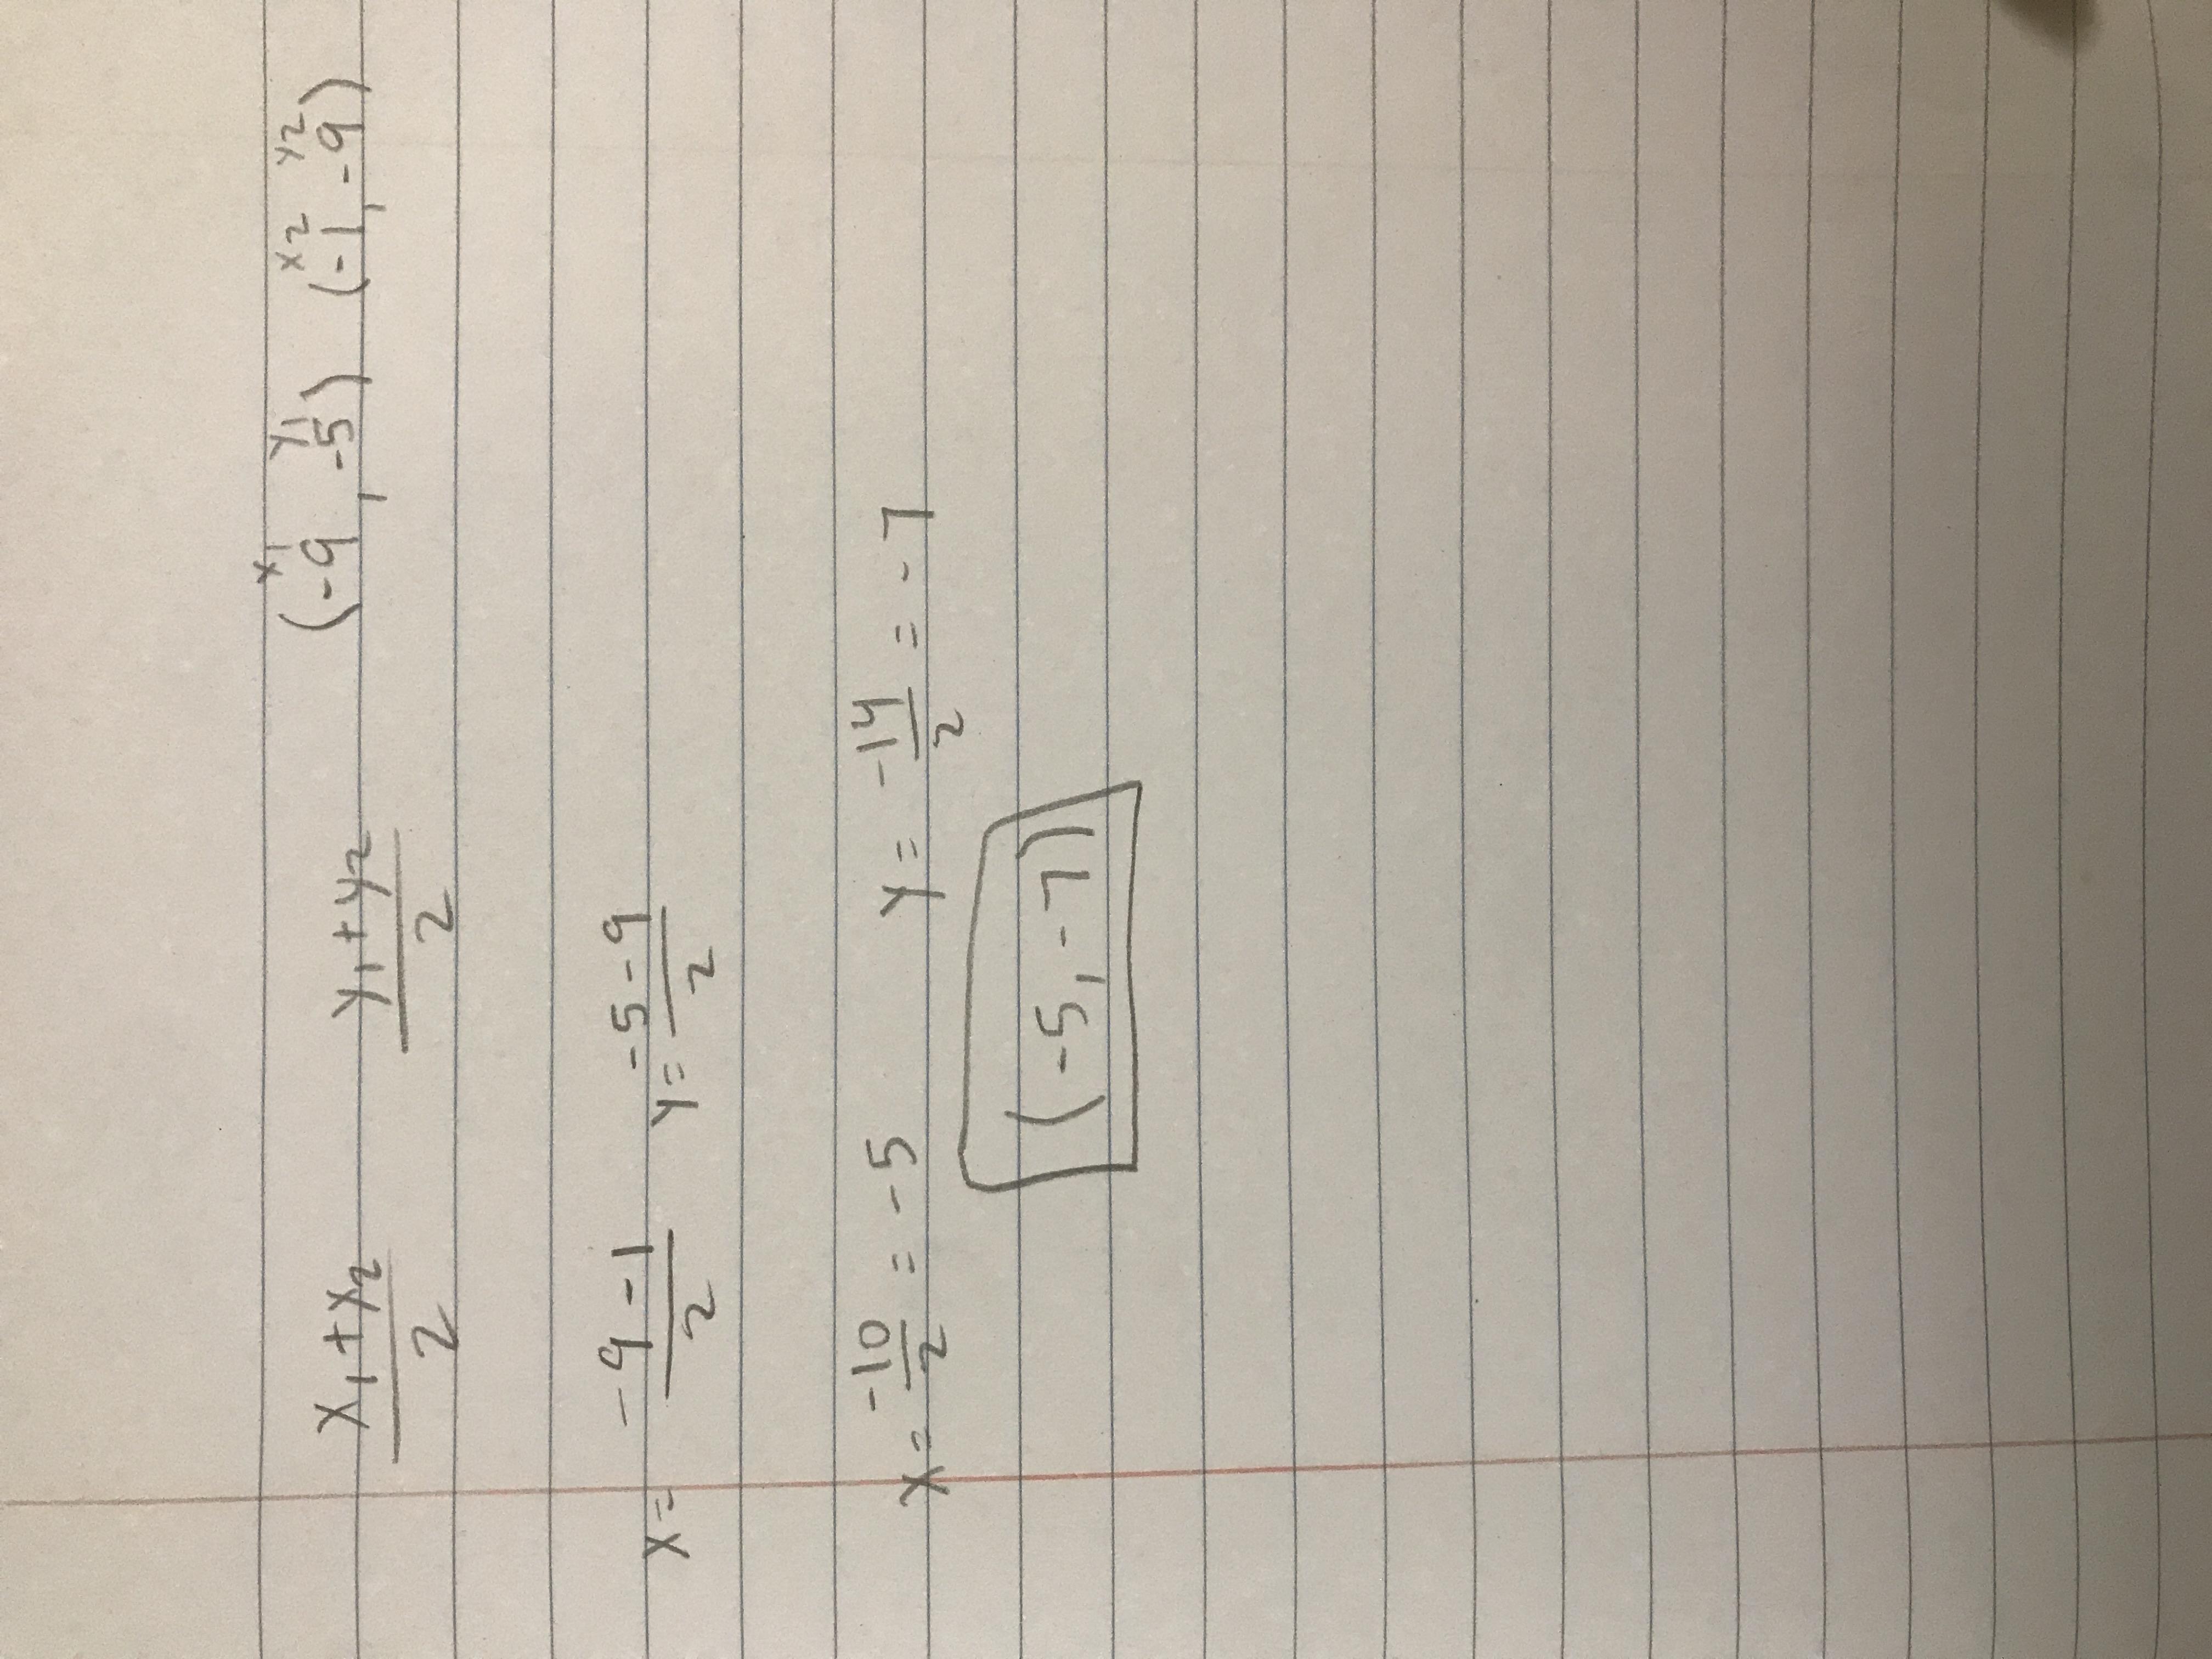 x₁+x₂/2 y₁+y₂/2 (-9, -5) (-1, -9)
x1 y1 x2 y2
x= -9-1/2 y= -5-9/2
x= -10/2 = -5 y= -14/2 = -7
(-5, -7)